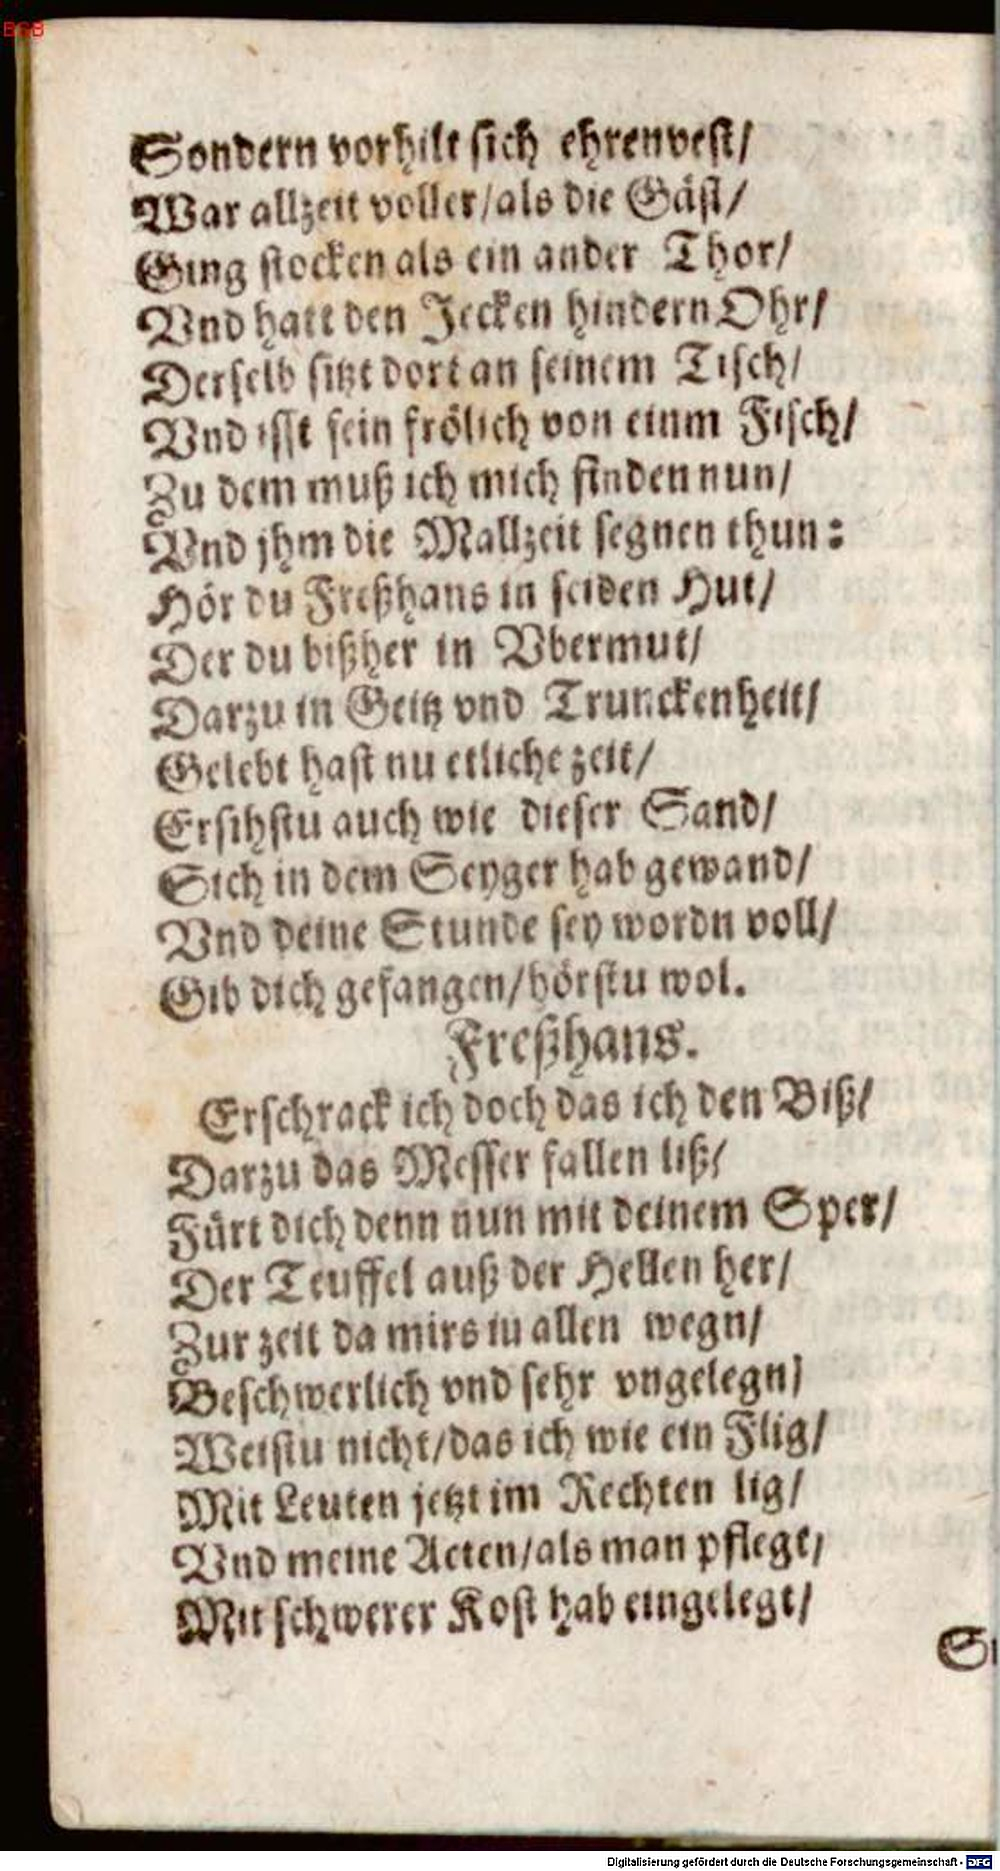 BSB
Sondern vorhilt sich ehrenvest/
War allzeit voller/als die Gäst/
Ging stocken als ein ander Thor/
Vnd hatt den Jecken hindern Ohr/
Derselb sitzt dort an seinem Tisch/
Vnd isst fein frölich von einm Fisch/
Zu dem muß ich mich finden nun/
Vnd jhm die Mallzeit segnen thun:
Hör du Freßhans in seiden Hut/
Der du bißher in Vbermut/
Darzu in Geitz vnd Trunckenheit/
Gelebt hast nu etliche zeit/
Ersihstu auch wie dieser Sand/
Sich in dem Seyger hab gewand/
Vnd deine Stunde sey wordn voll/
Gib dich gefangen/hörstu wol.
Freßhans.
Erschrack ich doch das ich den Biß/
Darzu das Messer fallen liß/
Fürt dich denn nun mit deinem Sper/
Der Teuffel auß der Hellen her/
Zur zeit da mirs in allen wegn/
Beschwerlich vnd sehr vngelegn/
Weistu nicht/das ich wie ein Flig/
Mit Leuten jetzt im Rechten lig/
Vnd meine Acten/als man pflegt/
Mit schwerer Kost hab eingelegt/
Digitalisierung gefördert durch die Deutsche Forschungsgemeinschaft - DFG